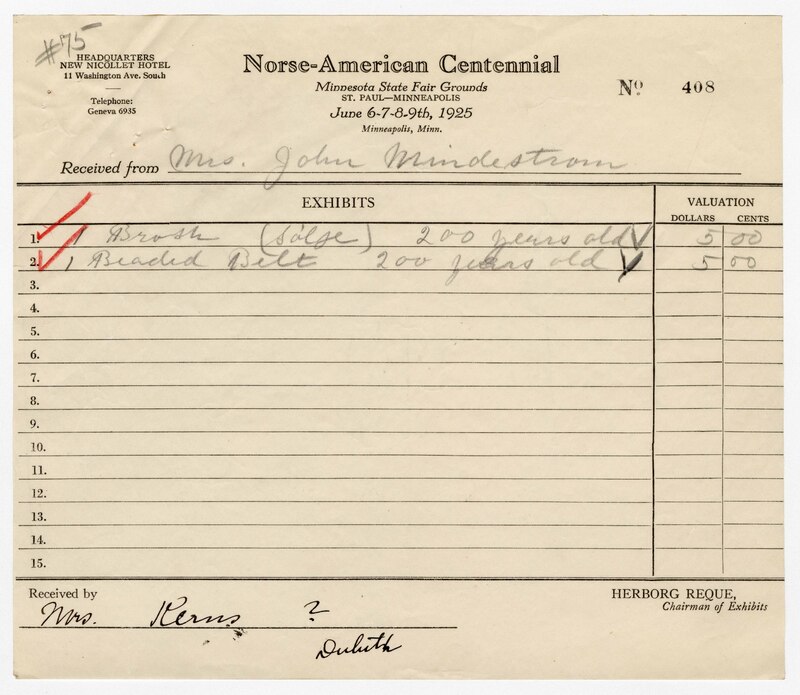 #75
HEADQUARTERS
NEW NICOLLET HOTEL
11 Washington Ave. South
Telephone:
Geneva 6935
Norse-American Centennial
Minnesota State Fair Grounds
ST. PAUL—MINNEAPOLIS
June 6-7-8-9th, 1925
Minneapolis, Minn.
No 408
Received from Mrs. John Mindestrom
EXHIBITS VALUATION
DOLLARS CENTS
1. 1 Brosh (Sölge) 200 years old 5 00
2. 1 Beaded Belt 200 years old 5 00
3.
4.
5.
6.
7.
8.
9.
10.
11.
12.
13.
14.
15.
Received by
Mrs. Kerns ?
Duluth
HERBORG REQUE,
Chairman of Exhibits